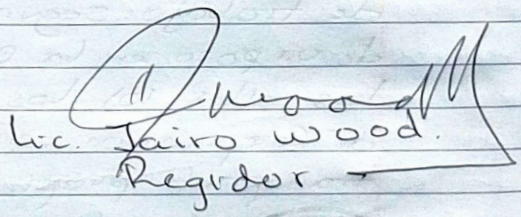 Lic. Jairo Wood.
Regidor